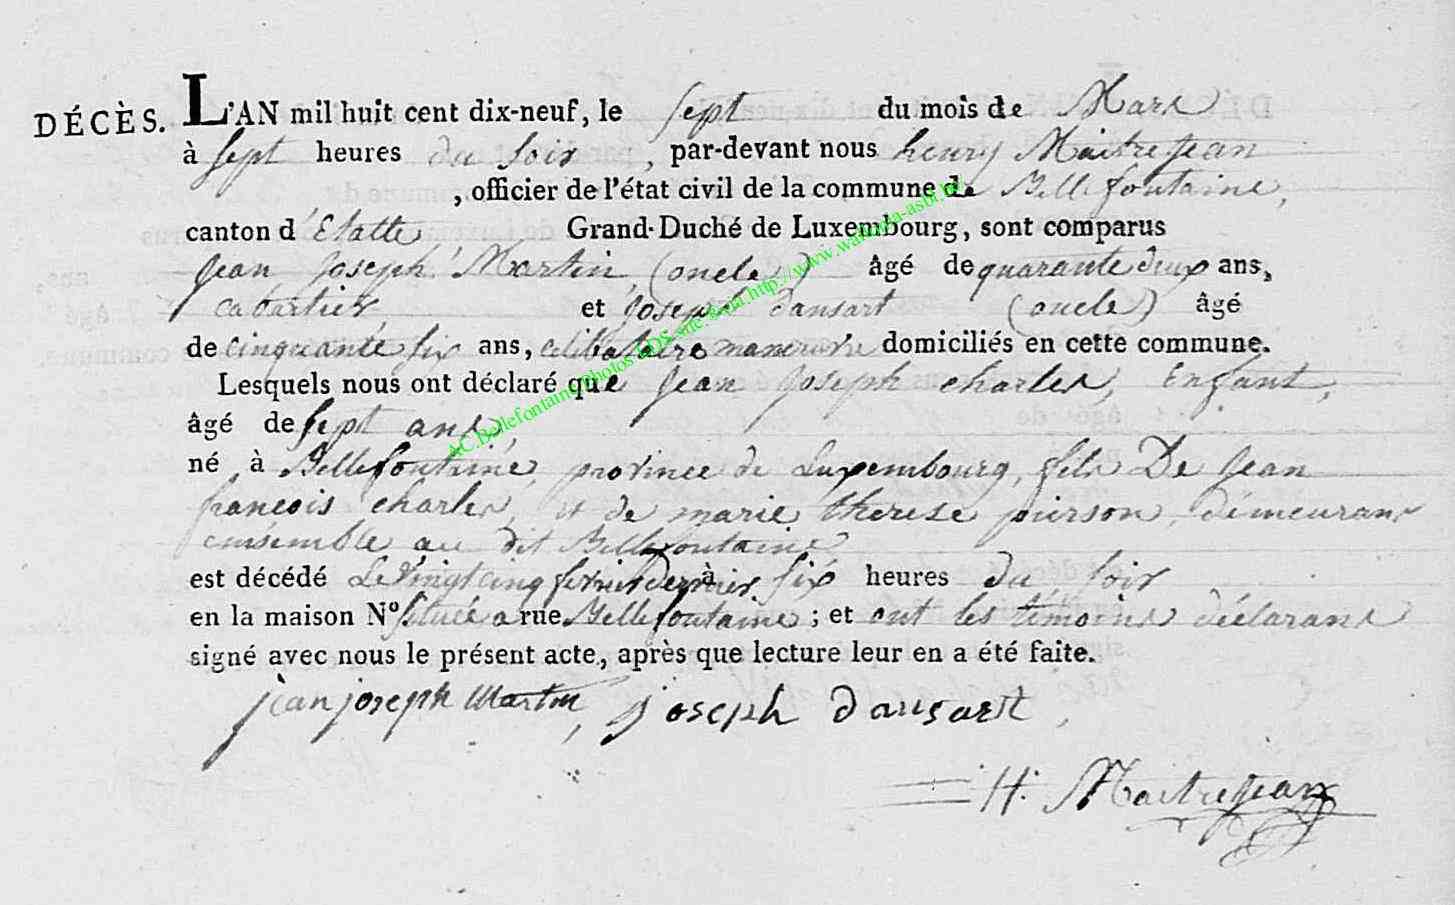 DÉCÈS. L'AN mil huit cent dix-neuf, le sept du mois de Mars
à sept heures du soir, par-devant nous henry Maitrejean
, officier de l'état civil de la commune de Bellefontaine,
canton d'Etalle Grand-Duché de Luxembourg, sont comparus
Jean Joseph Martin (oncle) âgé de quarante deux ans,
cabartier et Joseph dansart (oncle) âgé
de cinquante six ans, celibataire manœuvre domiciliés en cette commune.
Lesquels nous ont déclaré que Jean Joseph charles, Enfant,
âgé de sept ans,
né à Bellefontaine, province de Luxembourg, fils De Jean
françois charles, et de marie therese pierson, demeurant
ensemble au dit Bellefontaine
est décédé Le vingt cinq fevrier dernier à six heures du soir
en la maison N° située a rue Bellefontaine ; et ont les témoins déclarans
signé avec nous le présent acte, après que lecture leur en a été faite.
jean joseph Martin, joseph dansart,
H. Maitrejean
AC Bellefontaine Photos LDS site asbl http://www.wallonia-asbl.be